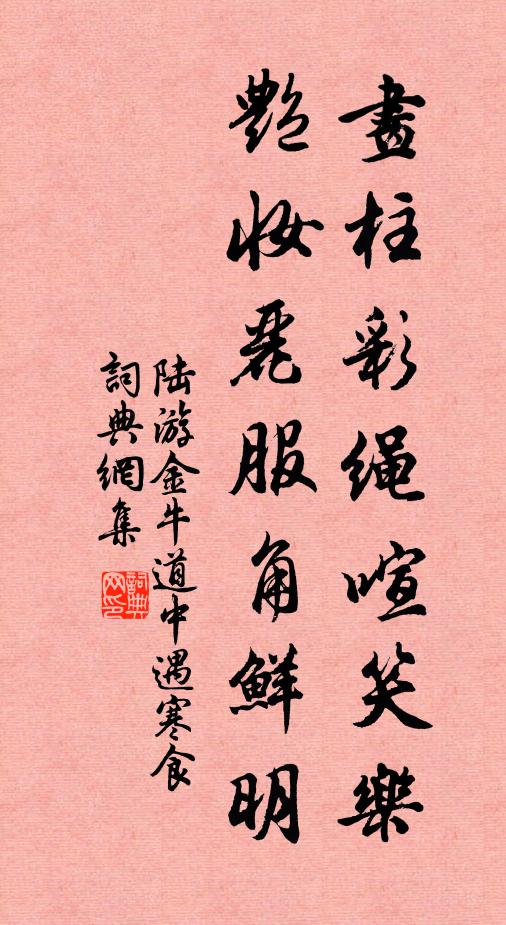 畫柱彩绳喧笑樂
艷妆麗服角鮮明
陆游金牛道中遇寒食
詞典網集
詞典网印